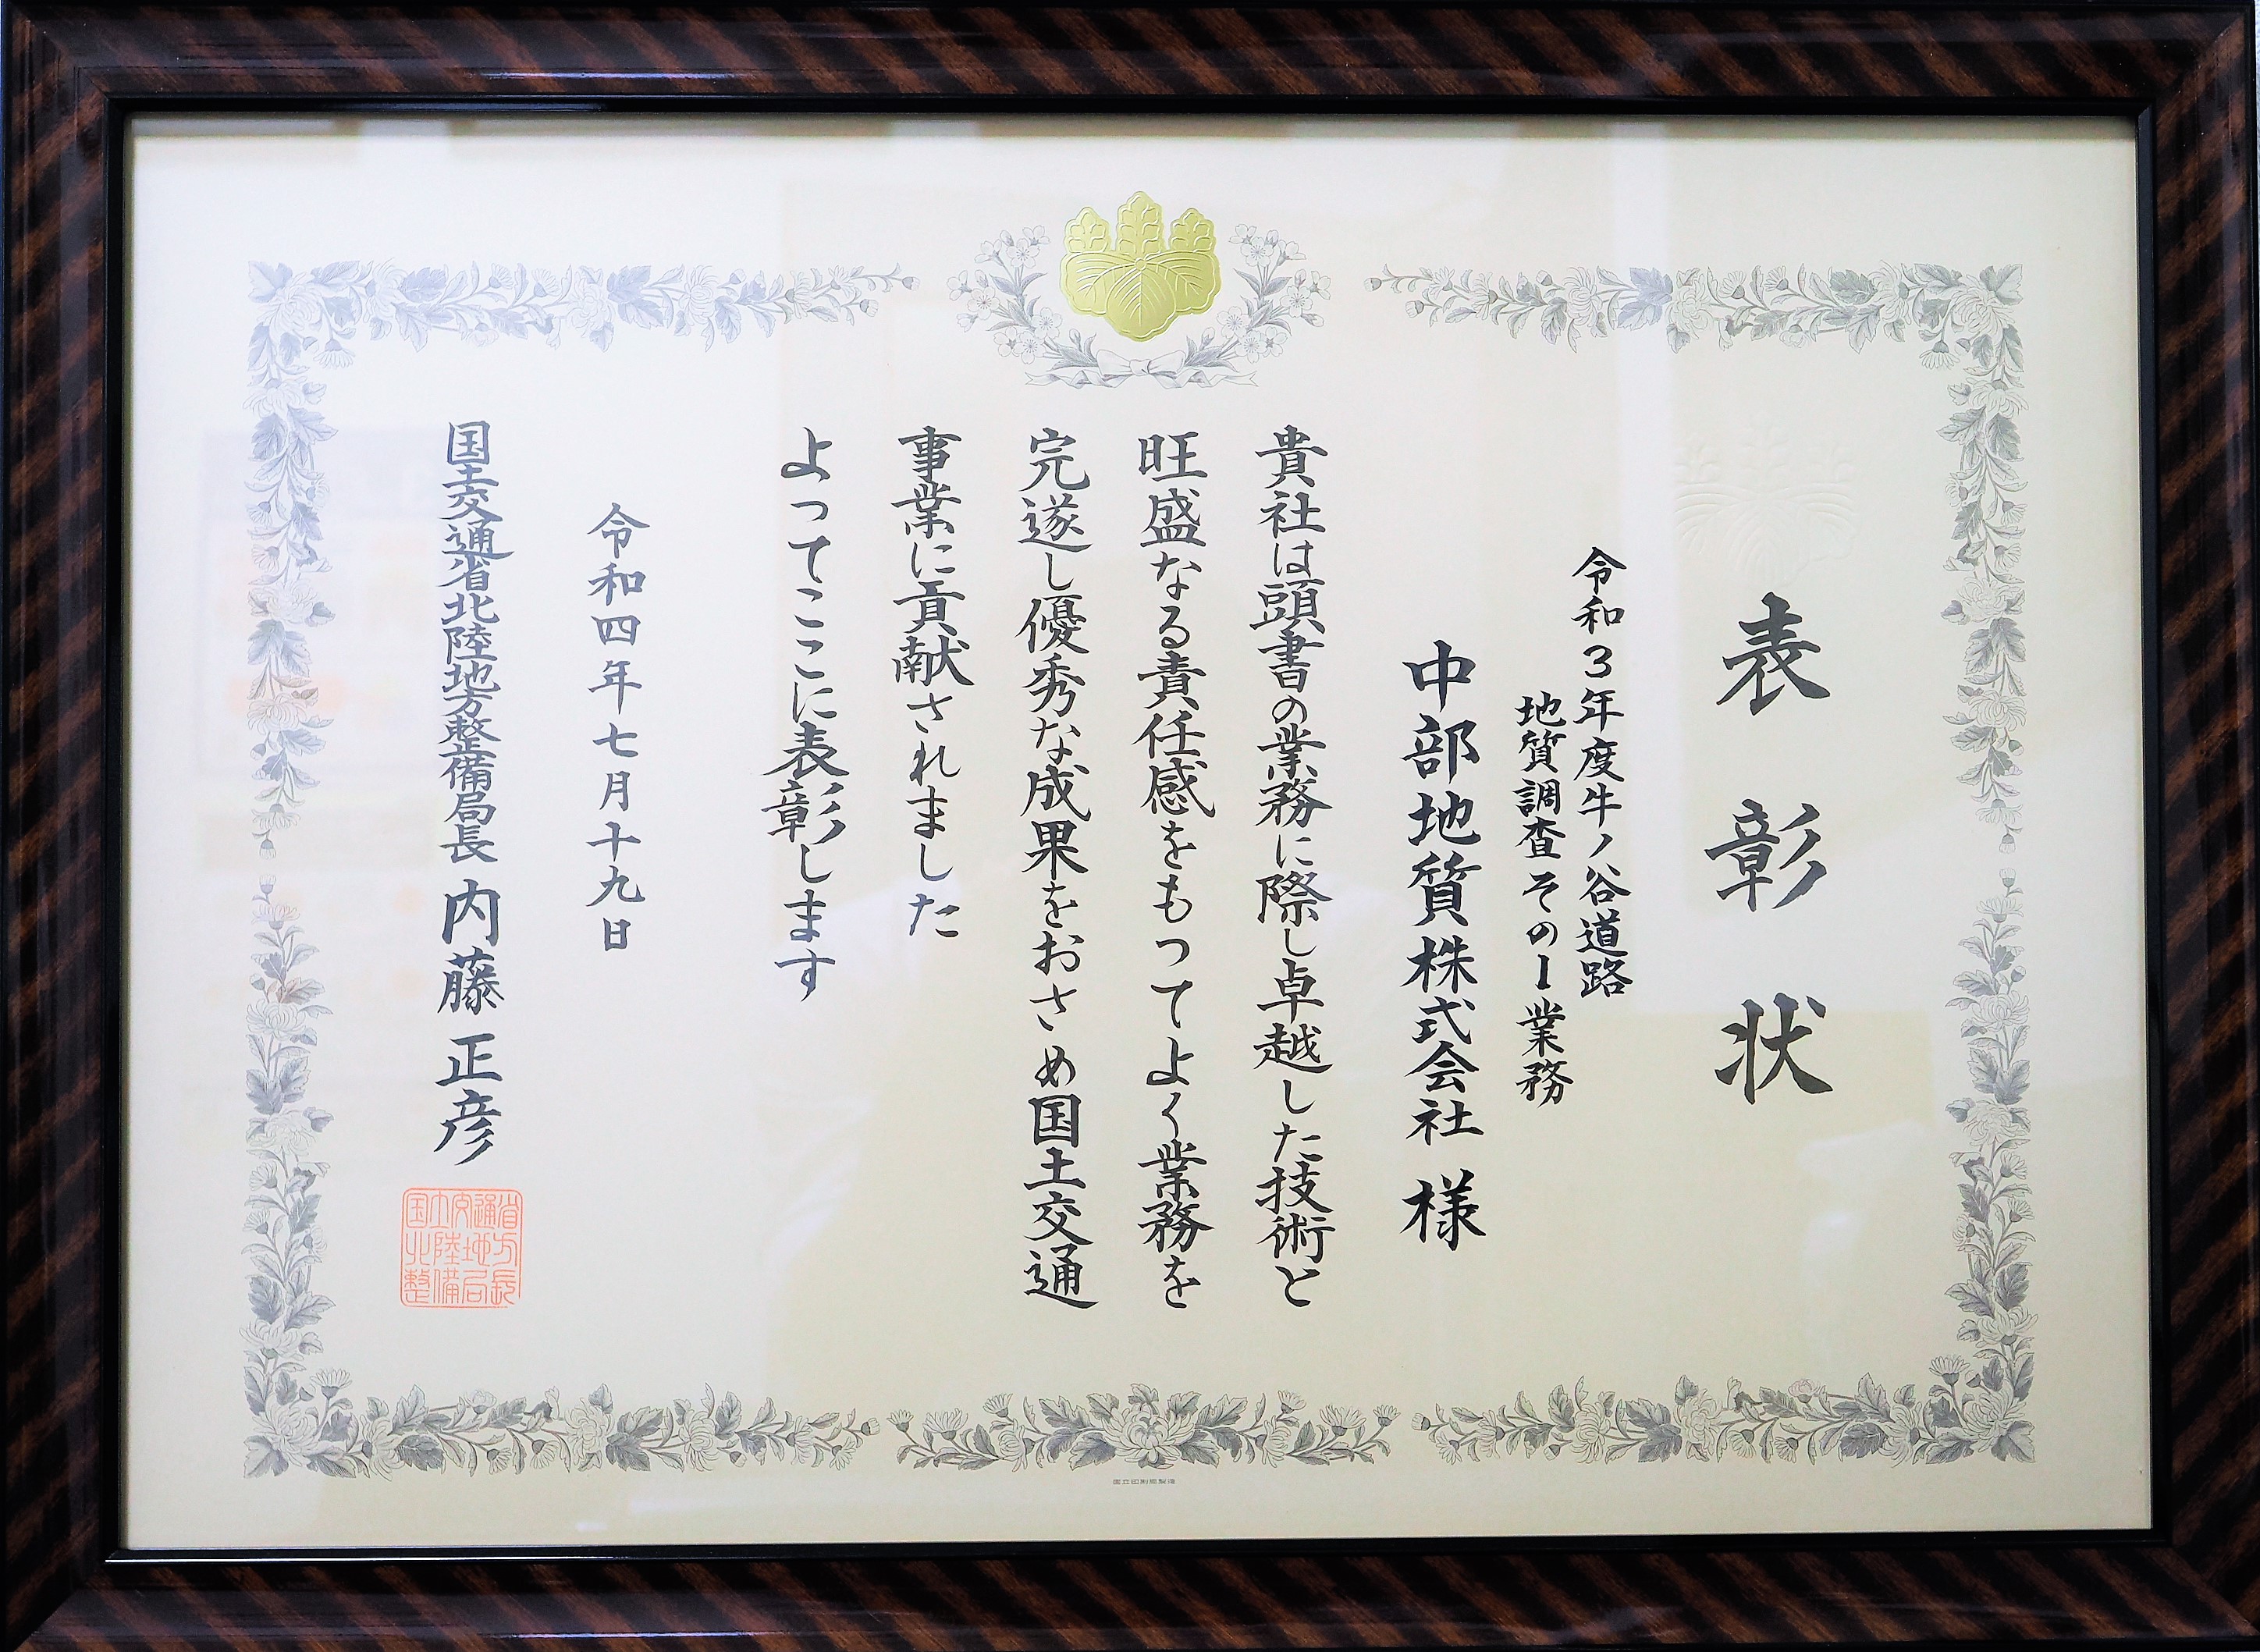 表彰状
令和3年度牛ノ谷道路
地質調査その1業務
中部地質株式会社 様
貴社は頭書の業務に際し卓越した技術と
旺盛なる責任感をもってよく業務を
完遂し優秀な成果をおさめ国土交通
事業に貢献されました
よってここに表彰します
令和四年七月十九日
国土交通省北陸地方整備局長 内藤正彦
国土交通省
北陸地方
整備局長
国立印刷局製造